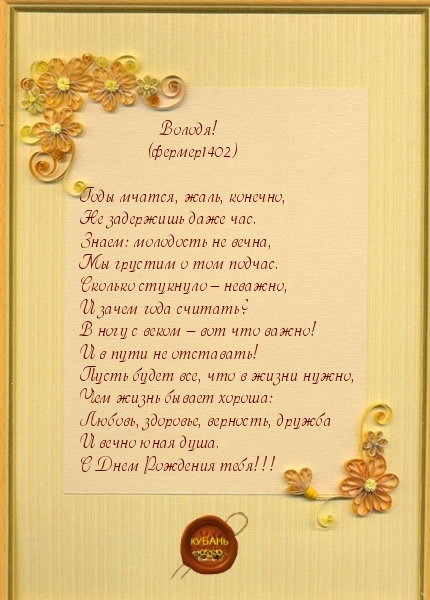 Володя!
(фермер1402)
Годы мчатся, жаль, конечно,
Не задержишь даже час.
Знаем: молодость не вечна,
Мы грустим о том подчас.
Сколько стукнуло – неважно,
И зачем года считать?
В ногу с веком – вот что важно!
И в пути не отставать!
Пусть будет все, что в жизни нужно,
Чем жизнь бывает хороша:
Любовь, здоровье, верность, дружба
И вечно юная душа.
С Днем Рождения тебя!!!
КУБАНЬ